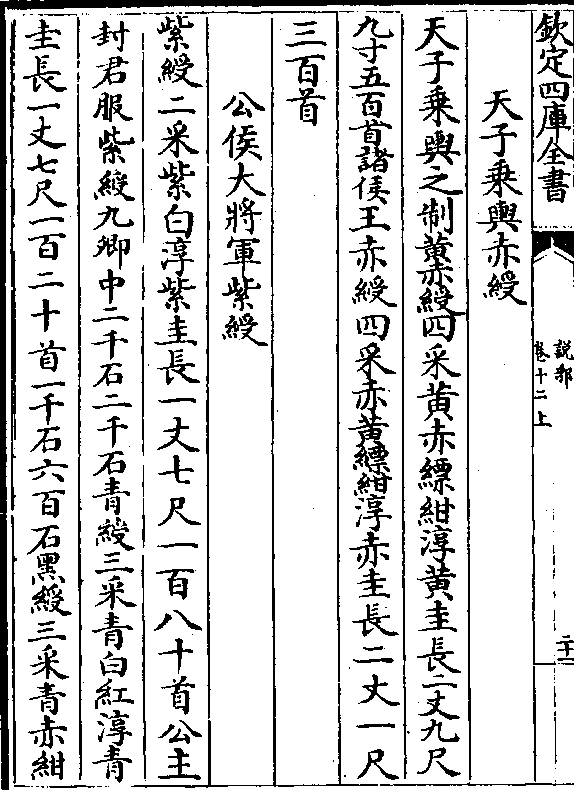 欽定四庫全書
説郛
卷十二上
二十一
天子乗輿赤綬
天子乗輿之制黄赤綬四采黄赤縹紺淳黄圭長二丈九尺
九寸五百首諸侯王赤綬四采赤黄縹紺淳赤圭長二丈一尺
三百首
公侯大將軍紫綬
紫綬二采紫白淳紫圭長一丈七尺一百八十首公主
封君服紫綬九卿中二千石二千石青綬三采青白紅淳青
圭長一丈七尺一百二十首一千石六百石黑綬三采青赤紺